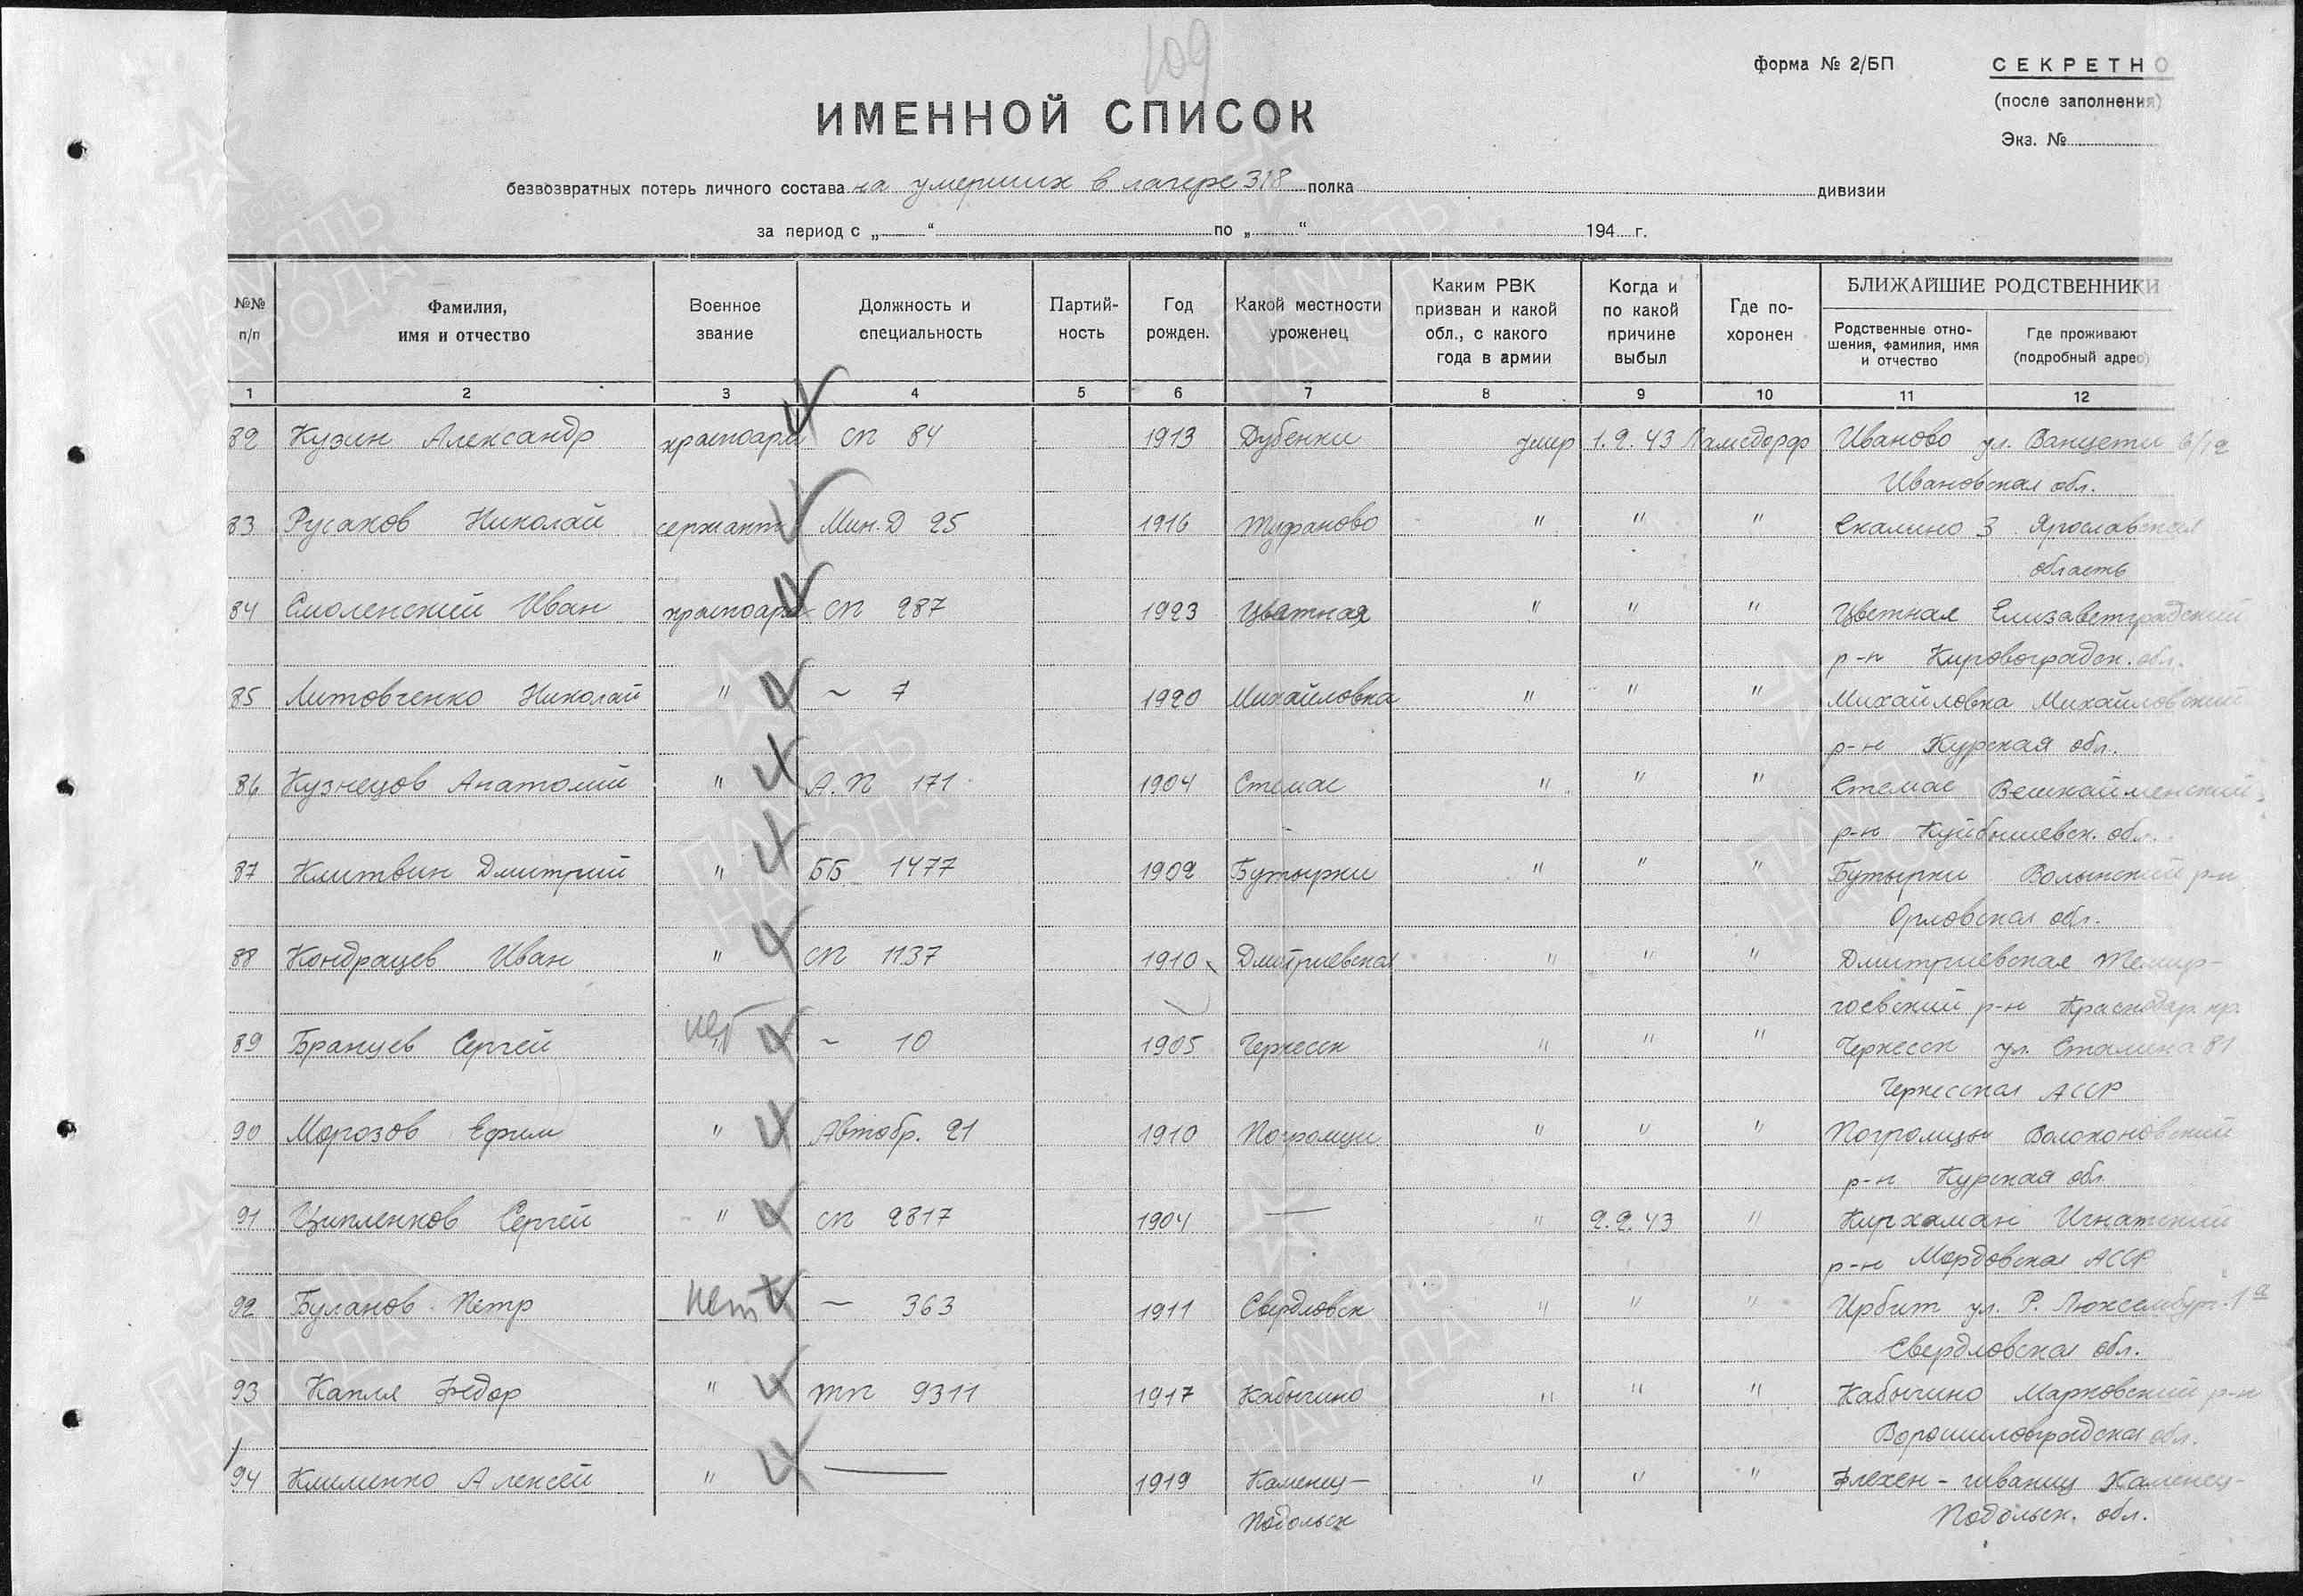 109
форма № 2/БП
СЕКРЕТНО
(после заполнения)
Экз. №
ИМЕННОЙ СПИСОК
безвозвратных потерь личного состава на умерших в лагере 318 полка дивизии
за период с „ “ по „ “ 194 г.
№№ п/п
Фамилия, имя и отчество
Военное звание
Должность и специальность
Партий-ность
Год рожден.
Какой местности уроженец
Каким РВК призван и какой обл., с какого года в армии
Когда и по какой причине выбыл
Где по-хоронен
БЛИЖАЙШИЕ РОДСТВЕННИКИ
Родственные отно-шения, фамилия, имя и отчество
Где проживают (подробный адрес)
1 2 3 4 5 6 7 8 9 10 11 12
82 Кузин Александр красноарм СП 84 1913 Дубенки умер 1.2.43 Ламсдорф Иваново ул. Ванцети 6/12
Ивановская обл.
83 Русаков Николай сержант Мин.Д 25 1916 Туфаново " " " Скалино 3 Ярославская
область
84 Смоленский Иван красноарм СП 287 1923 Цветная " " " Цветная Елизаветградский
р-н Кировоградск. обл.
85 Литовченко Николай " ~ 7 1920 Михайловка " " " Михайловка Михайловский
р-н Курская обл.
86 Кузнецов Анатолий " А.П 171 1904 Стемас " " " Стемас Вешкайменский
р-н Куйбышевск. обл.
87 Клитвин Дмитрий " ББ 1477 1902 Бутырки " " " Бутырки Волынский р-н
Орловская обл.
88 Кондрацев Иван " СП 1137 1910 Дмитриевская " " " Дмитриевская Темир-
гоевский р-н Краснодар. кр.
89 Бранцев Сергей нет ~ 10 1905 Черкесск " " " Черкесск ул. Сталина 81
Черкесская АССР
90 Морозов Ефим " Автобр. 21 1910 Погромци " " " Погромцы Волоконовский
р-н Курская обл.
91 Ципленков Сергей " СП 2817 1904 — " 2.2.43 " Киржаман Игнатский
р-н Мордовская АССР
92 Буланов Петр нет ~ 363 1911 Свердловск " " " Ирбит ул. Р. Люксембург. 1а
Свердловская обл.
93 Капля Федор " ТП 9311 1917 Кабычино " " " Кабычино Марковский р-н
Ворошиловградская обл.
94 Клименко Алексей " — 1919 Каменец- " " " Флехен-чиваниц Каменец-
Подольск Подольск. обл.
ПАМЯТЬ НАРОДА